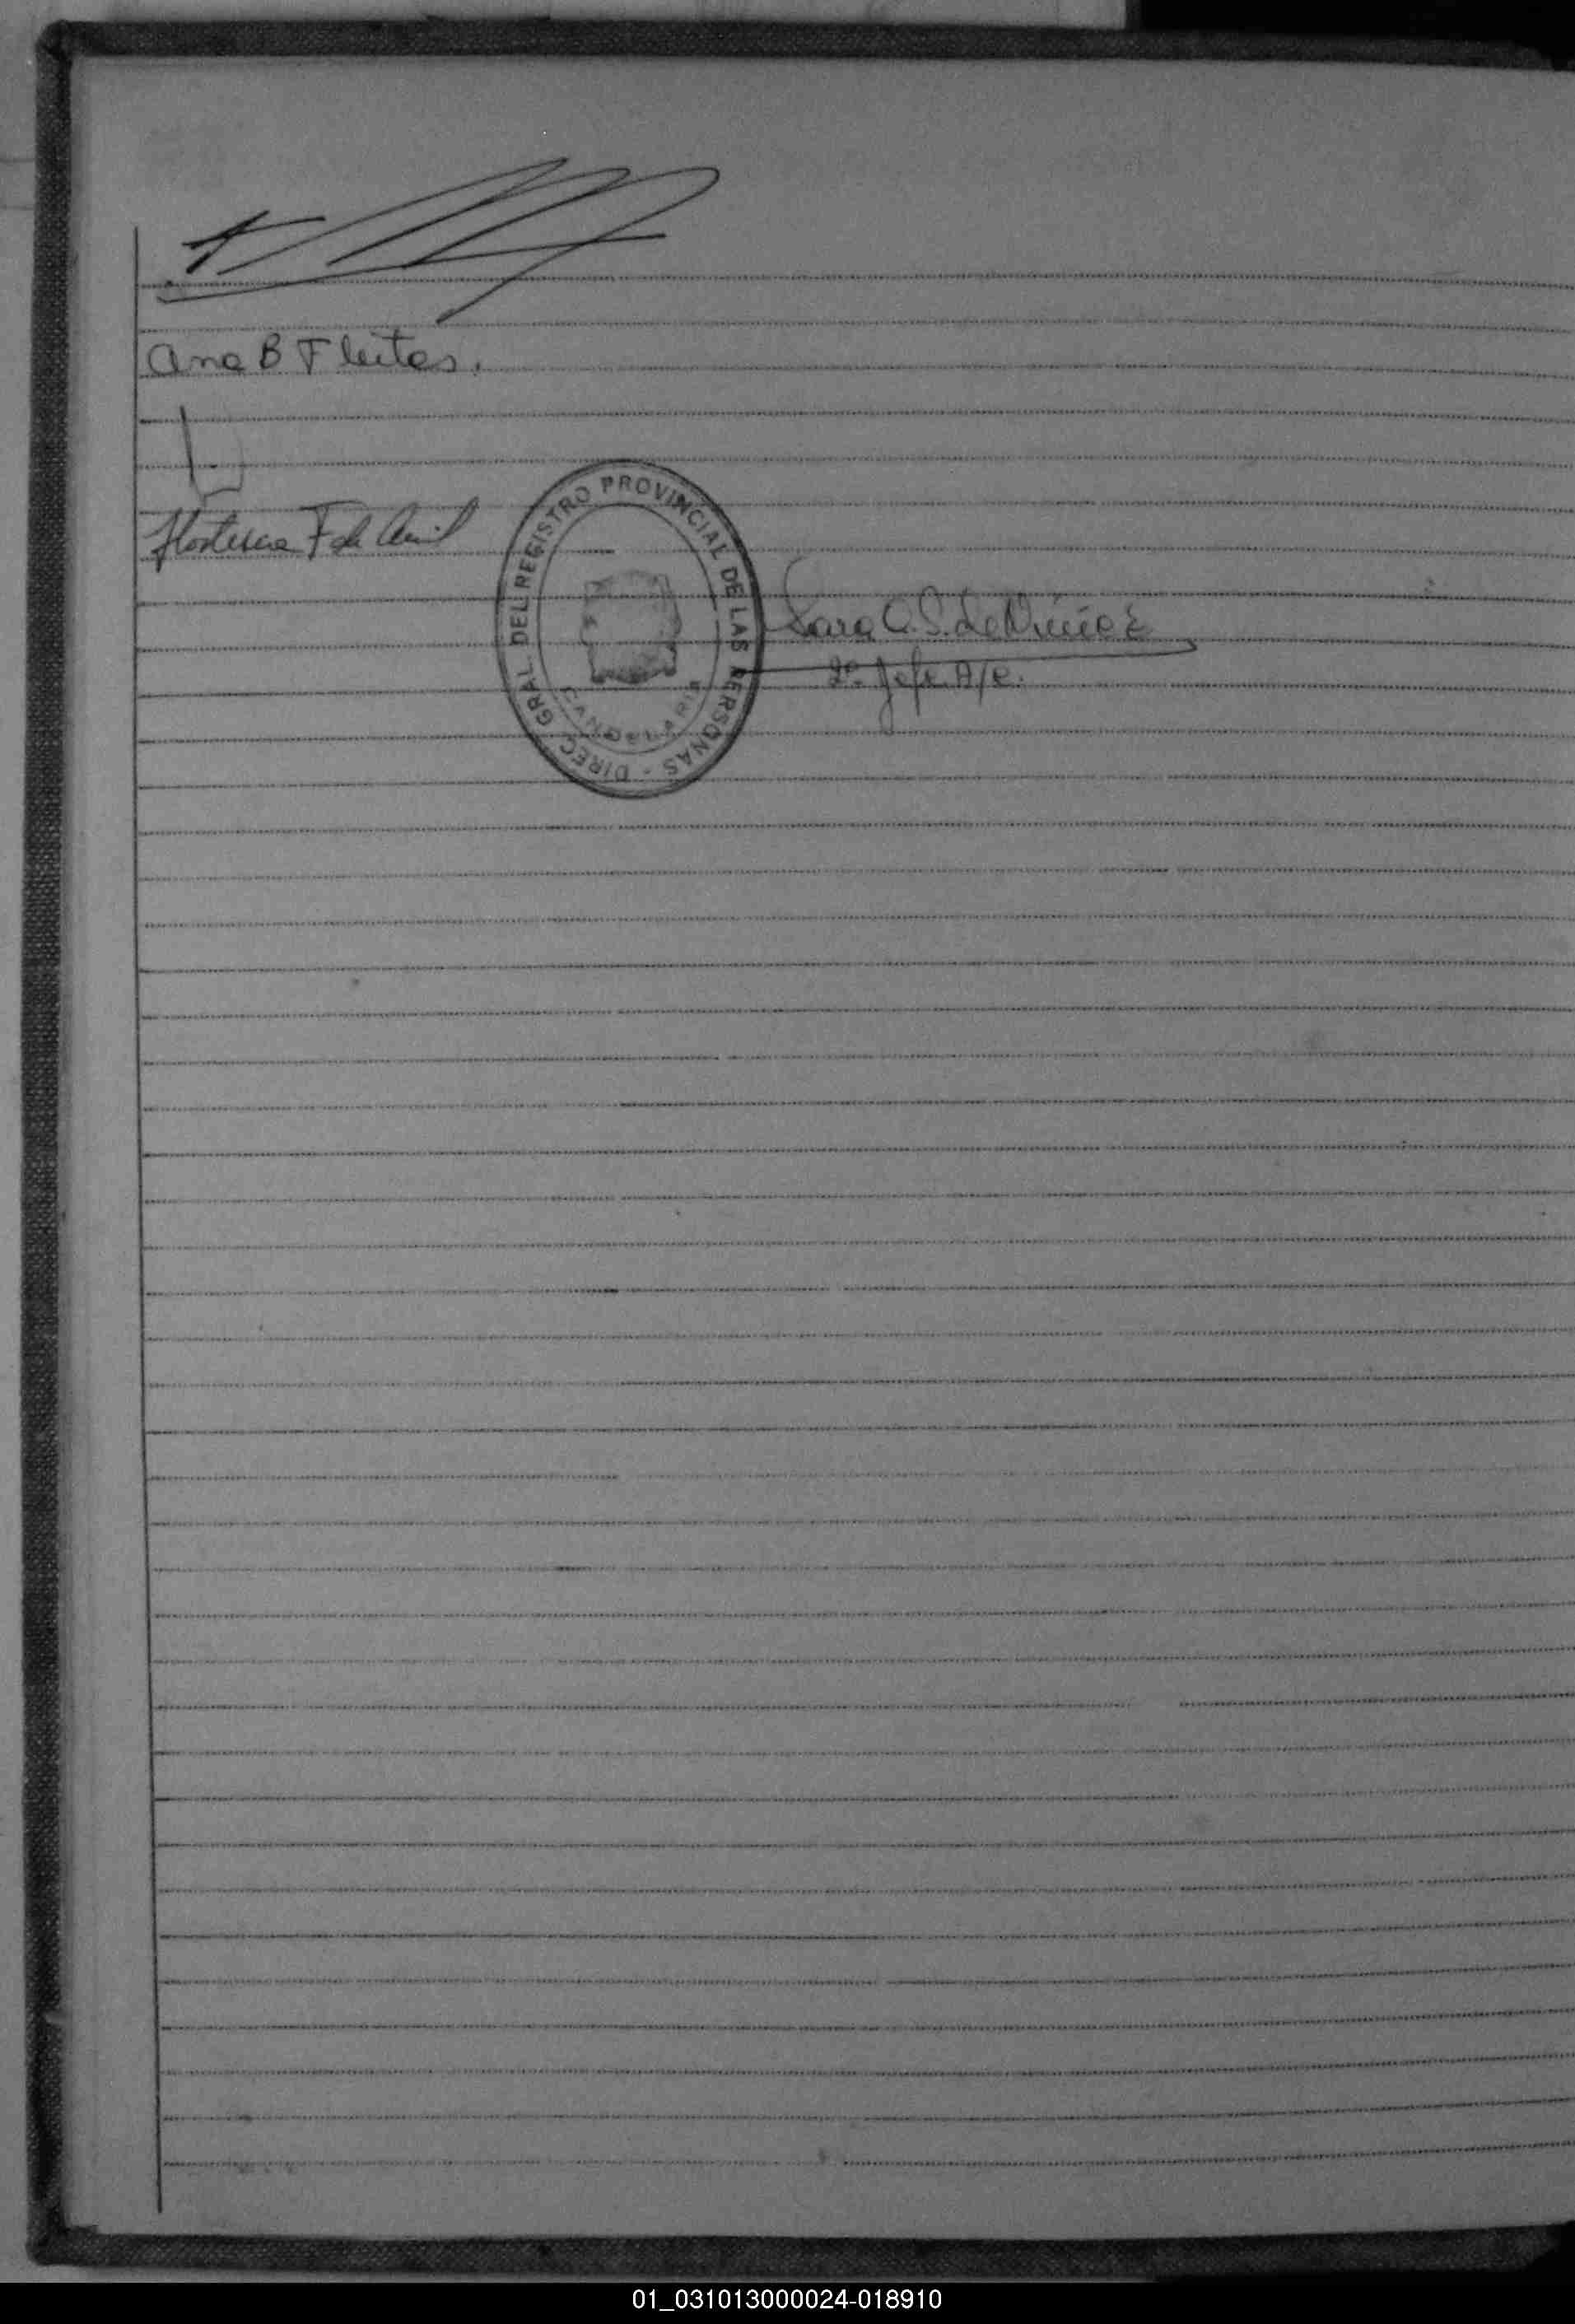 Ana B Fleitas.
F de
DIREC. GRAL. DEL REGISTRO PROVINCIAL DE LAS PERSONAS -
CANDELARIA
Sara A. S. de Núñez
2º Jefe A/c.
01_031013000024-018910